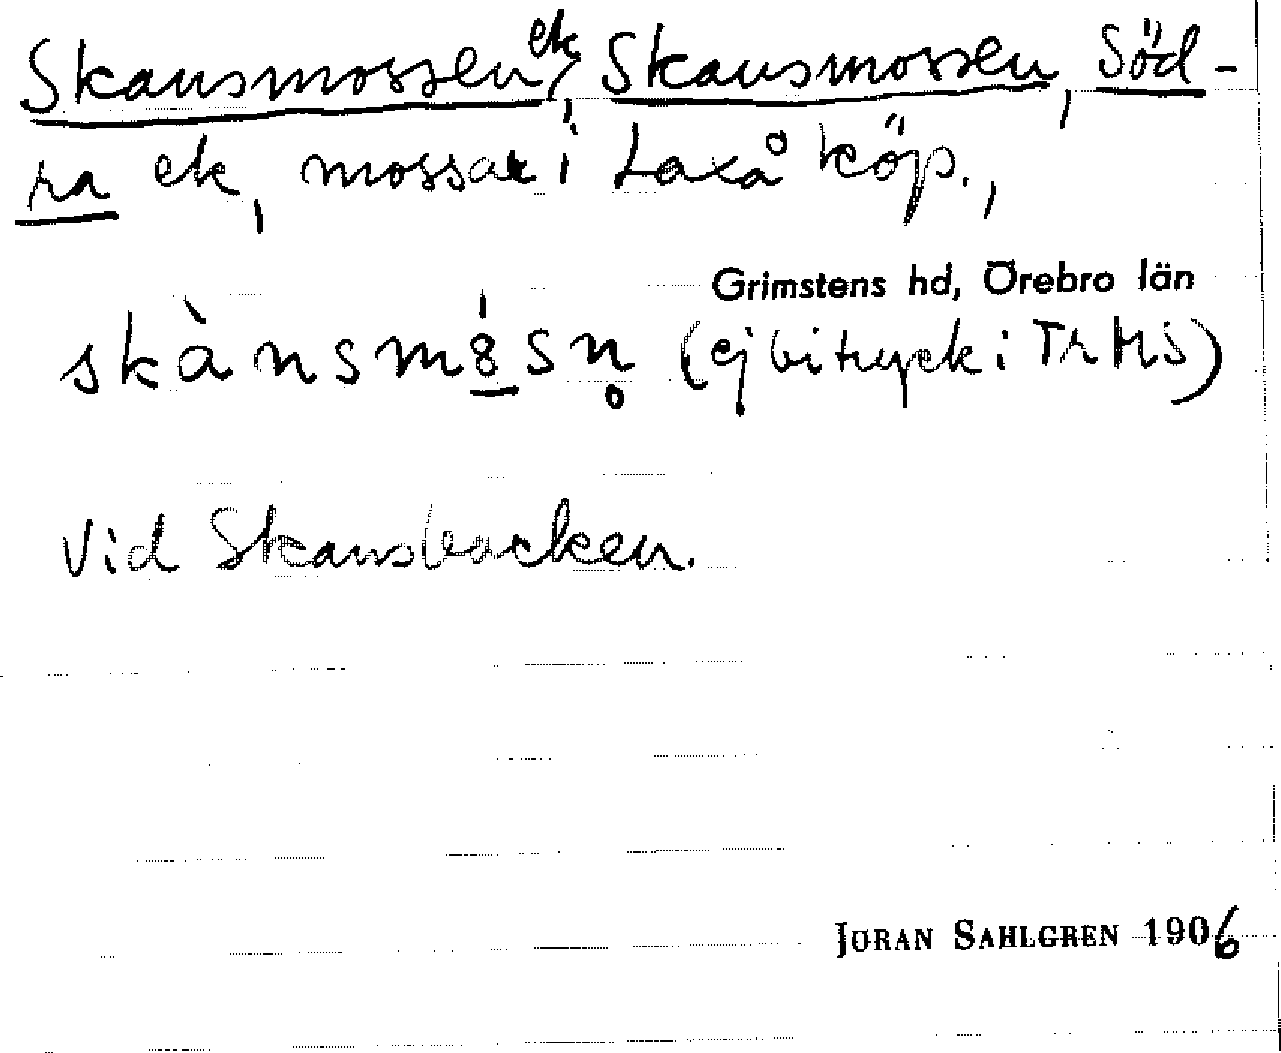 Skansmossen ek, Skansmossen, Söd-
ra ek, mossar i Laxå köp.,
Grimstens hd, Örebro län
skànsmo̲sn̥ (ej bitryck i
Vid Skansbacken.
JÖRAN SAHLGREN 1906